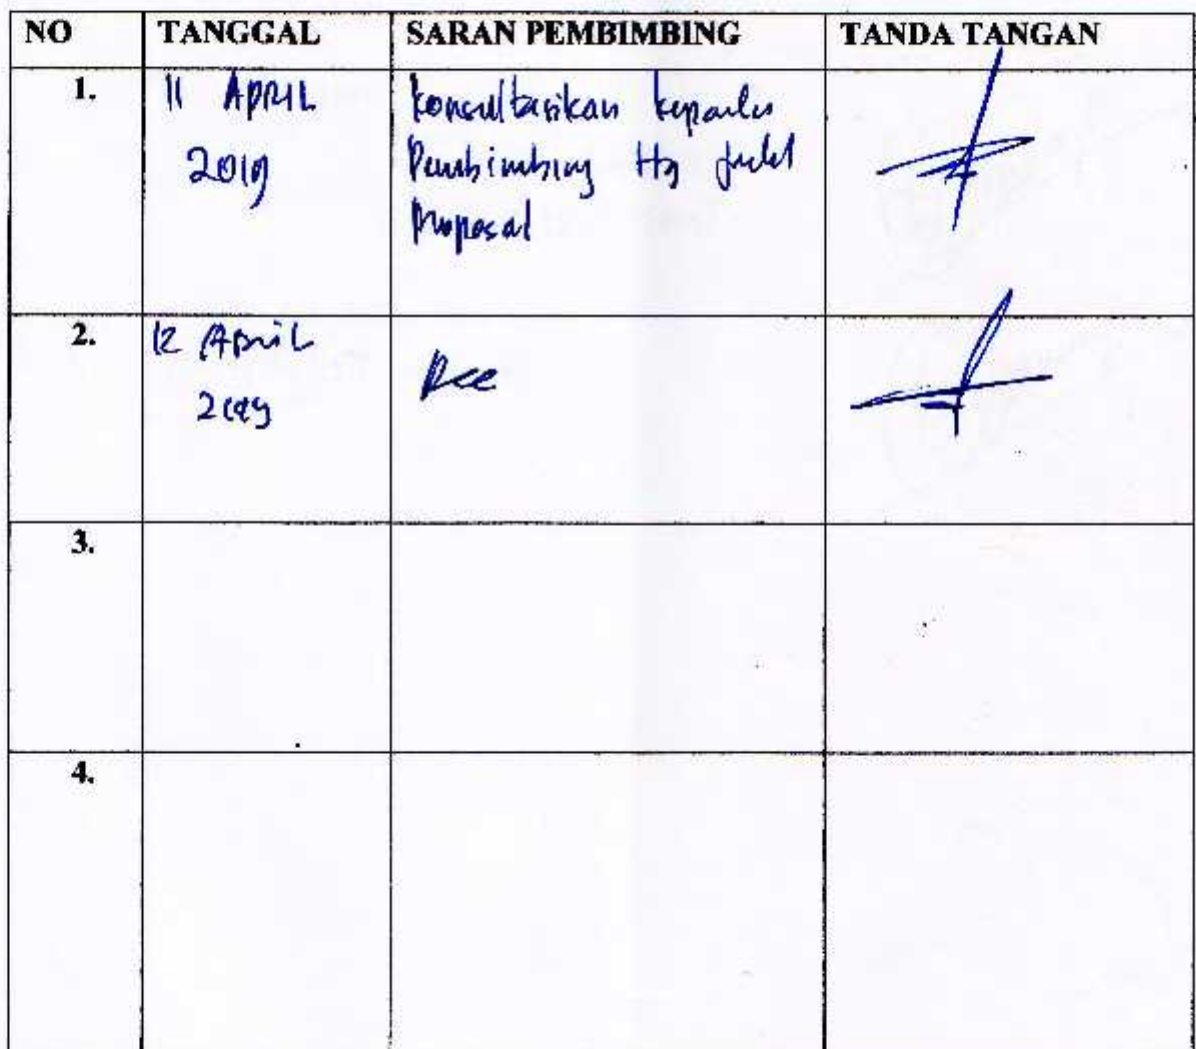 NO TANGGAL SARAN PEMBIMBING TANDA TANGAN
1. 11 APRIL konsultasikan kepada
2019 Pembimbing Ttg judul
proposal
2. 12 April
2019 Acc
3.
4.